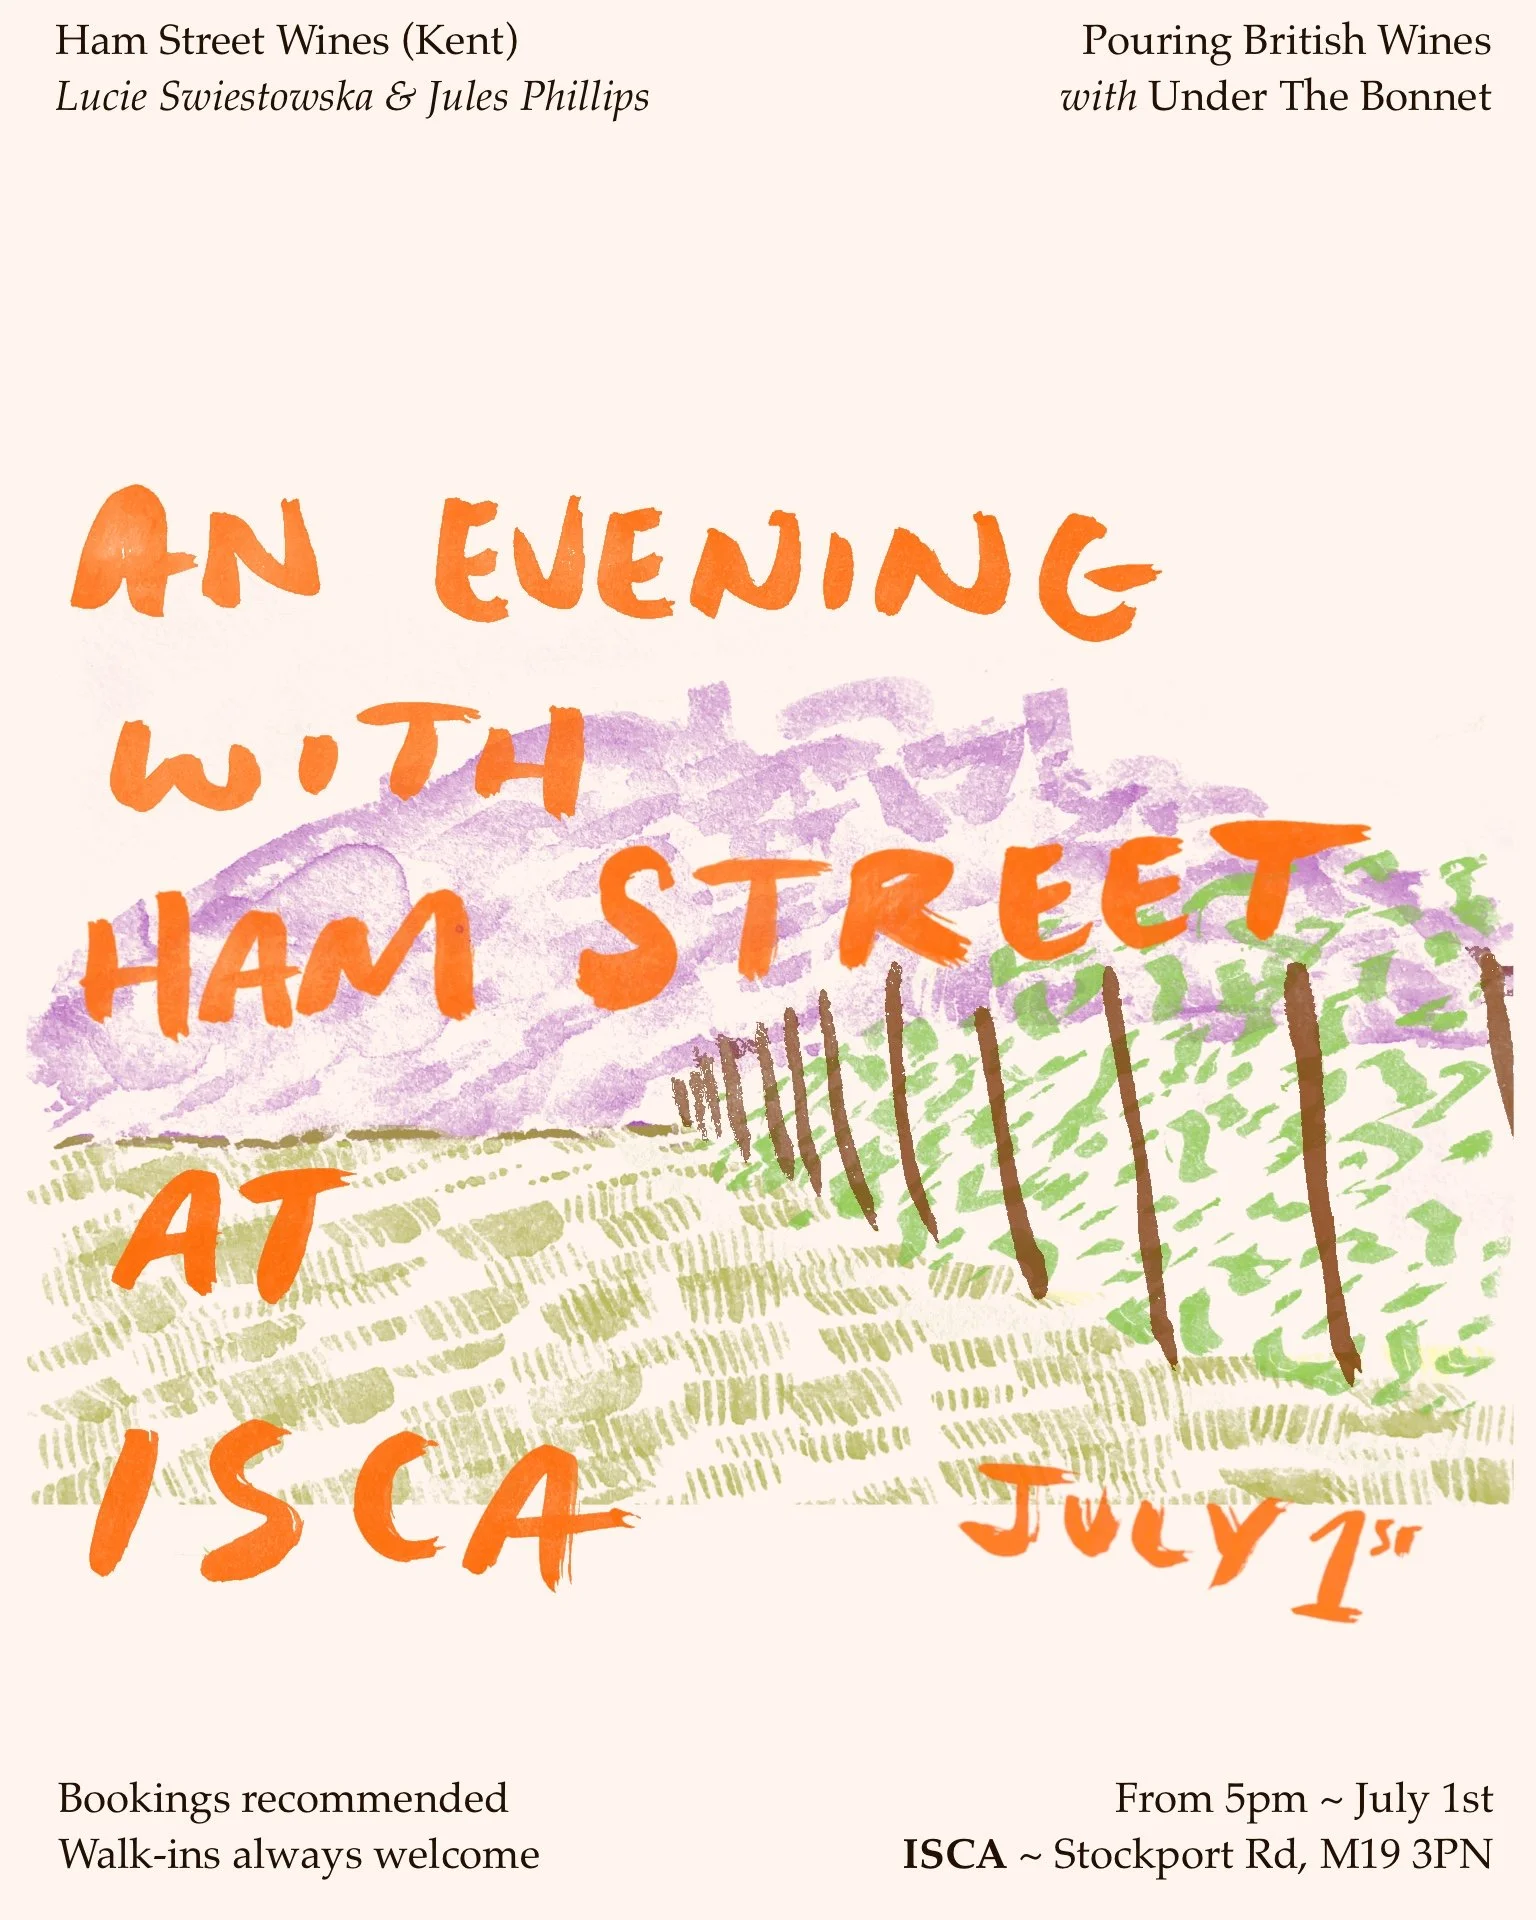 Ham Street Wines (Kent)
Lucie Swiestowska & Jules Phillips
Pouring British Wines
with Under The Bonnet
AN EVENING
WITH
HAM STREET
AT
ISCA
JULY 1ST
Bookings recommended
Walk-ins always welcome
From 5pm ~ July 1st
ISCA ~ Stockport Rd, M19 3PN